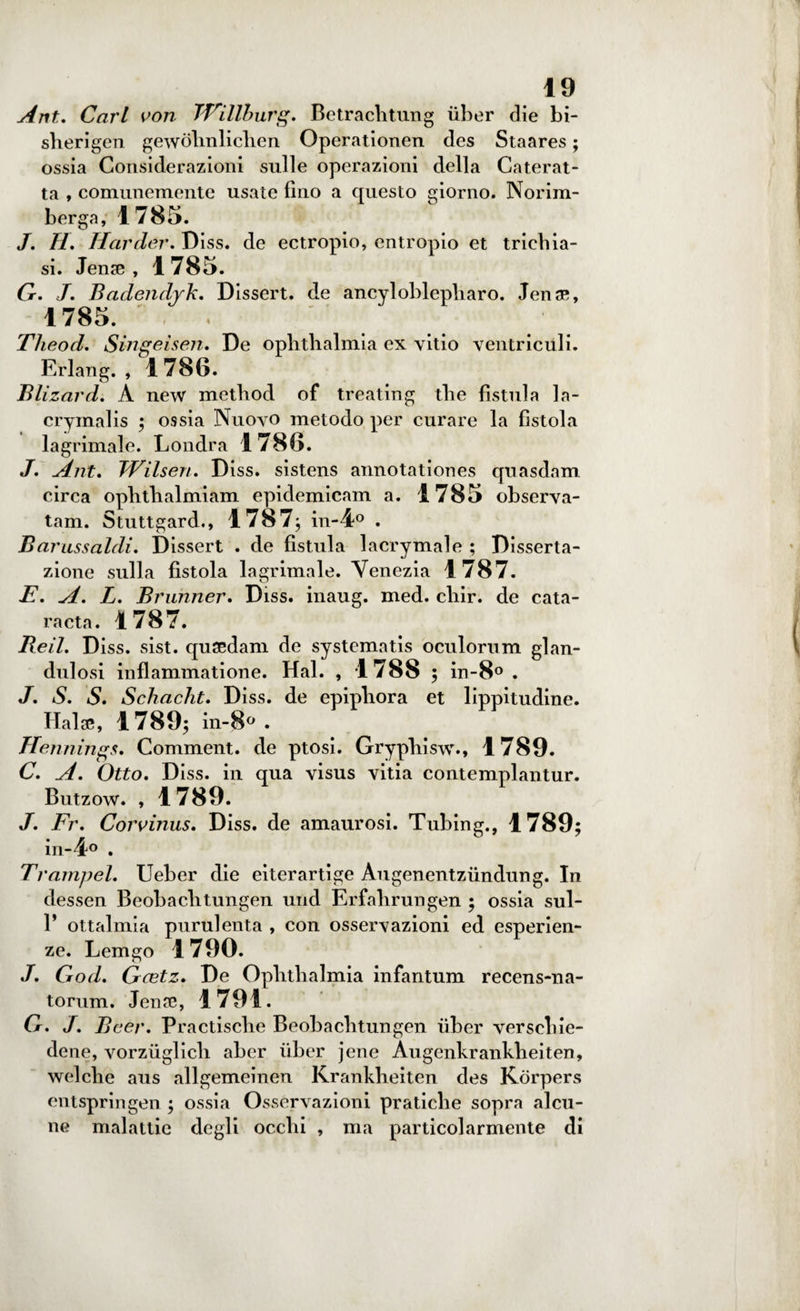 19
Ant. Carl von Willburg. Betrachtung über die bi-
sherigen gewöhnlichen Operationen des Staares ;
ossia Considerazioni sulle operazioni della Caterat-
ta , comunemente usate fino a questo giorno. Norim-
berga, 1785.
J. H. Harder. Diss. de ectropio, entropio et trichia-
si. Jenæ , 1785.
G. J. Badendyk. Dissert. de ancyloblepharo. Jenæ,
1785.
Theod. Singeisen. De ophthalmia ex vitio ventriculi.
Erlang. , 1786.
Blizard. A new method of treating the fistula la-
crymalis ; ossia Nuovo metodo per curare la fistola
lagrimale. Londra 1786.
J. Ant. Wilsen. Diss. sistens annotationes quasdam
circa ophthalmiam epidemicam a. 1785 observa-
tam. Stuttgard., 1787; in-4o .
Barussaldi. Dissert . de fistula lacrymale ; Disserta-
zione sulla fistola lagrimale. Venezia 1787.
E. A. L. Brunner. Diss. inaug. med. chir. de cata-
racta. 1787.
Reil. Diss. sist. quædam de systematis oculorum glan-
dulosi inflammatione. Hal. , 1788 ; in-8o .
J. S. S. Schacht. Diss. de epiphora et lippitudine.
Halæ, 1789; in-8o .
Hennings. Comment. de ptosi. Gryphisw., 1789.
C. A. Otto. Diss. in qua visus vitia contemplantur.
Butzow. , 1789.
J. Fr. Corvinus. Diss. de amaurosi. Tubing., 1789;
in-4o .
Trampel. Ueber die eiterartige Augenentzündung. In
dessen Beobachtungen und Erfahrungen ; ossia sul-
l' ottalmia purulenta , con osservazioni ed esperien-
ze. Lemgo 1790.
J. God. Gœtz. De Ophthalmia infantum recens-na-
torum. Jenæ, 1791.
G. J. Beer. Practische Beobachtungen über verschie-
dene, vorzüglich aber über jene Augenkrankheiten,
welche aus allgemeinen Krankheiten des Körpers
entspringen ; ossia Osservazioni pratiche sopra alcu-
ne malattie degli occhi , ma particolarmente di